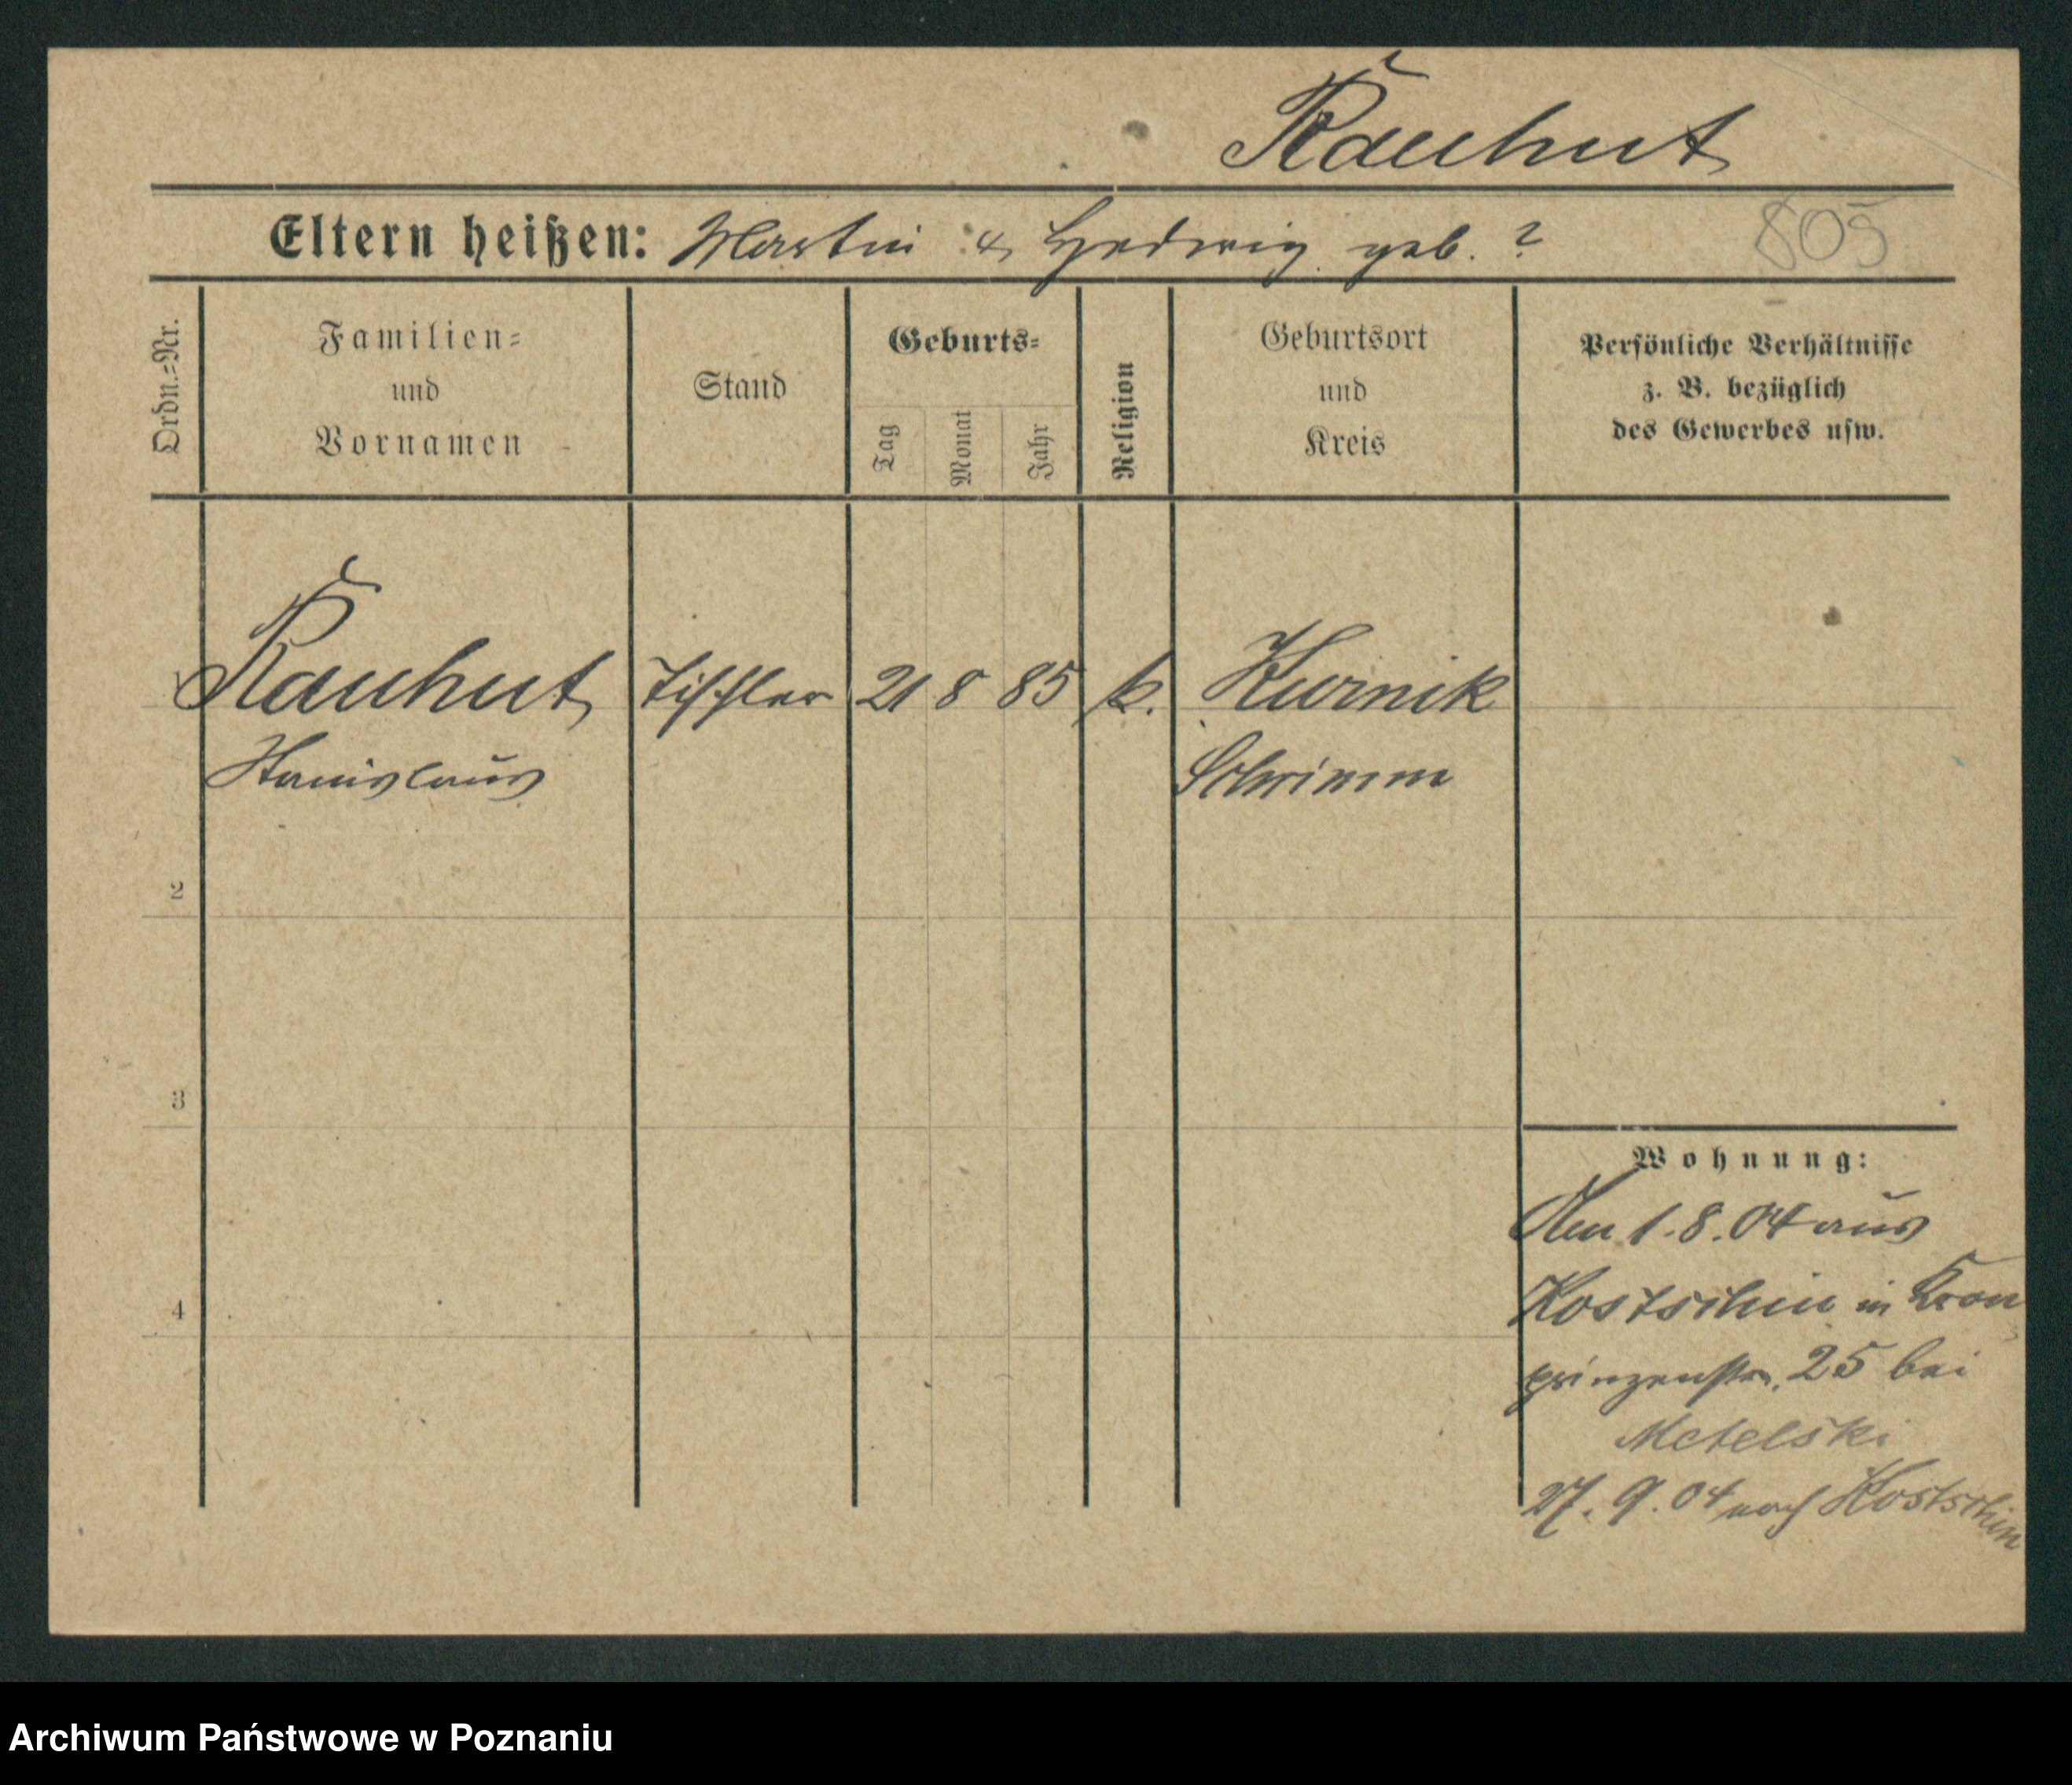 Rauhut
Eltern heißen: Martin & Hedwig geb. ?
805
Ordn.-Nr.
Familien-
und
Vornamen
Stand
Geburts-
Tag
Monat
Jahr
Religion
Geburtsort
und
Kreis
Persönliche Verhältnisse
z. B. bezüglich
des Gewerbes usw.
Rauhut Tischler 21 8 85 k. Kurnik
Stanislaus Schrimm
2
3
4
Wohnung:
Den 1.8.04 aus
Kostschin in Kron
prinzenstr. 25 bei
Metelski
27. 9. 04 nach Kostschin
Archiwum Państwowe w Poznaniu